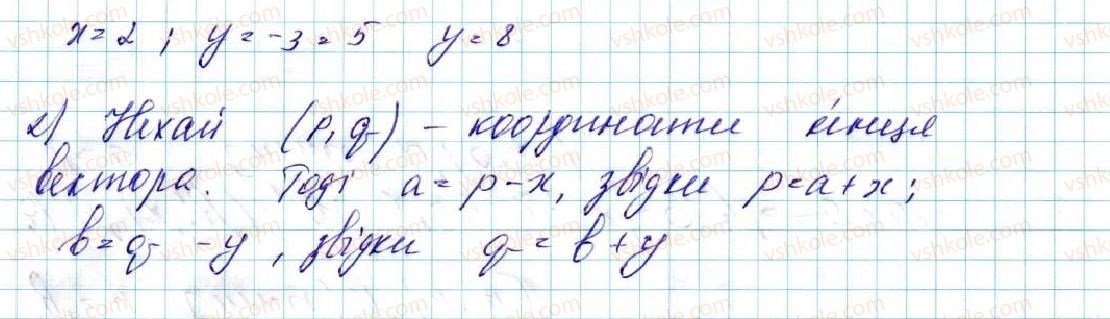 x = 2 ; y = -3 = 5 y = 8
2) Нехай (p, q) - координати кінця
вектора. Тоді a = p - x, звідки p = a + x ;
b = q - y , звідки q = b + y